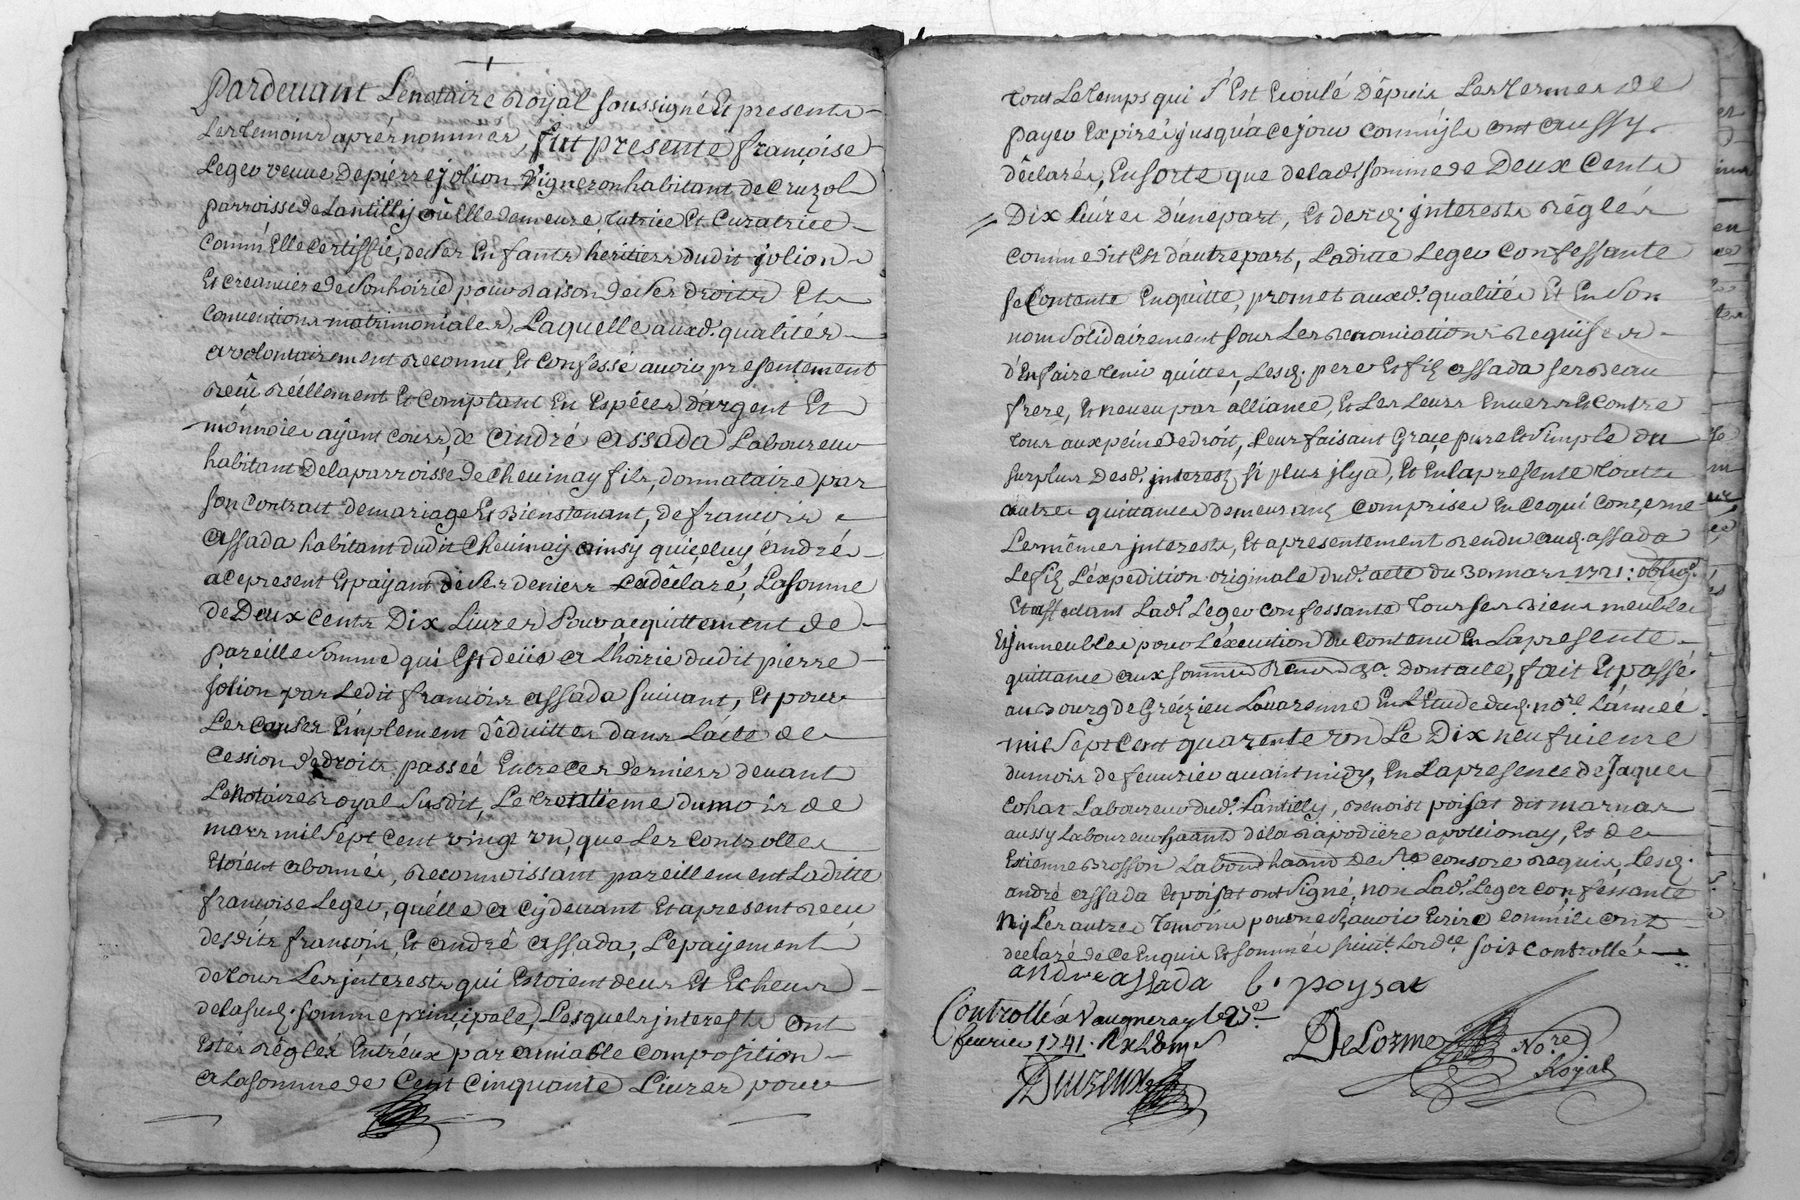 Pardevant Lenotaire Royal soussigné Et presents
Les temoins aprés nommés, fut presente françoise
Leger veuve depierre jolion Vigneron habitant de Cruzol
parroisse de Lantilly où Elle demeure, tutrice Et Curatrice
comm'Elle certiffie, de ses Enfants heritiers dudit jolion
Et creanciere de son hoirie pour raison de ses droits Et
Conventions matrimoniales, Laquelle auxd. qualités
a volontairement reconnu, Et confessé avoir presentement
reçû réellement Et Comptant En Espêces d'argent Et
monnoies ayant cours, de andré assada Laboureur
habitant de la parroisse de cheuinay fils, donnataire par
son contract de mariage Et Bienstenant, de francois
assada habitant dudit Cheuinay ainsy qu'içeluy andré
a ce present Et payant de ses deniers a declaré, La somme
de Deux cents Dix Liures Pour acquittement de
pareille somme qui Est deüe a L'hoirie dudit pierre
jolion par Ledit francois assada suivant, Et pour
Les causes Emplement déduittes dans L'acte de
Cession de droits passeé Entre Ces derniers devant
Le Notaire Royal Susdit, Le trentième du mois de
mars mil sept cent vingt vn, que Les controlles
Etoient abonnés, reconnoissant pareillement Laditte
françoise Leger, qu'elle a cy devant Et apresent reçu
desdits françois, Et andré assada, Le payement
de tous Les jnterests qui Estoient deus Et Echeus
de la susd. somme principale, Lesquels jnterests ont
Estés réglés Entr'eux par amiable composition
a La somme de Cent Cinquante Livres pour
tout Le temps qui s'Est Ecoulé dépuis Les termes de
payer Expirés jusqu'a ce jour comm'jls ont aussy
déclarés, En sorte que de lad. somme de Deux Cents
Dix liures d'une part, Et desd. jnterests réglés
comme dit Est d'autre part, Laditte Leger confessante
se Contente Enquitte, promet auxd. qualités Et En son
nom solidairement sous Les renonciations requises
d'En faire tenir quittes, Lesd. pere Et fils assada ses Beau
frere, Et neveu par alliance, Et Les Leurs Envers Et contre
tous aux peines de droit, Leur faisant Graçe pure Et simple du
surplus desd. jnterests si plus jl y a, Et En la presente toutte
autres quittances demeurants comprises En ce qui conçerne
Les mêmes jnterests, Et a presentement rendu aud. assada
Le fils L'expedition originale dud. acte du 30 mars 1721: oblig.
Et affectant Lad. Leger confessante tous ses Biens meubles
Et jmmeubles pour L'éxecution du contenu En La presente
quittance aux sommes Renonç &a. Dont acte, fait Et passé
au Bourg de Grézieu Lavarenne En L'Etude dud. no.re L'année
mil sept cent quarente vn Le Dix neufvieme
du mois de feuvrier avant midy, En La presence de Jaques
Cohas Laboureur dud. Lantilly, Benoist poisat dit marnas
aussy Laboureur hâant de la Rapodiere a pollionay, Et de
Estienne Brosson Labour hâant de Ste consorce requis, Lesd.
andré assada Et poisat ont signé, non Lad. Leger confessante
Ny Les autres temoins pour ne sçauoir Ecrire comm'ils ont
declaré de ce Enquis Et sommés suiut. Lord.ce soit Controllé
andre assada b. poysat
Controllé a Vaugneray le 23e
feurier 1741.
DeLorme No.re Royal